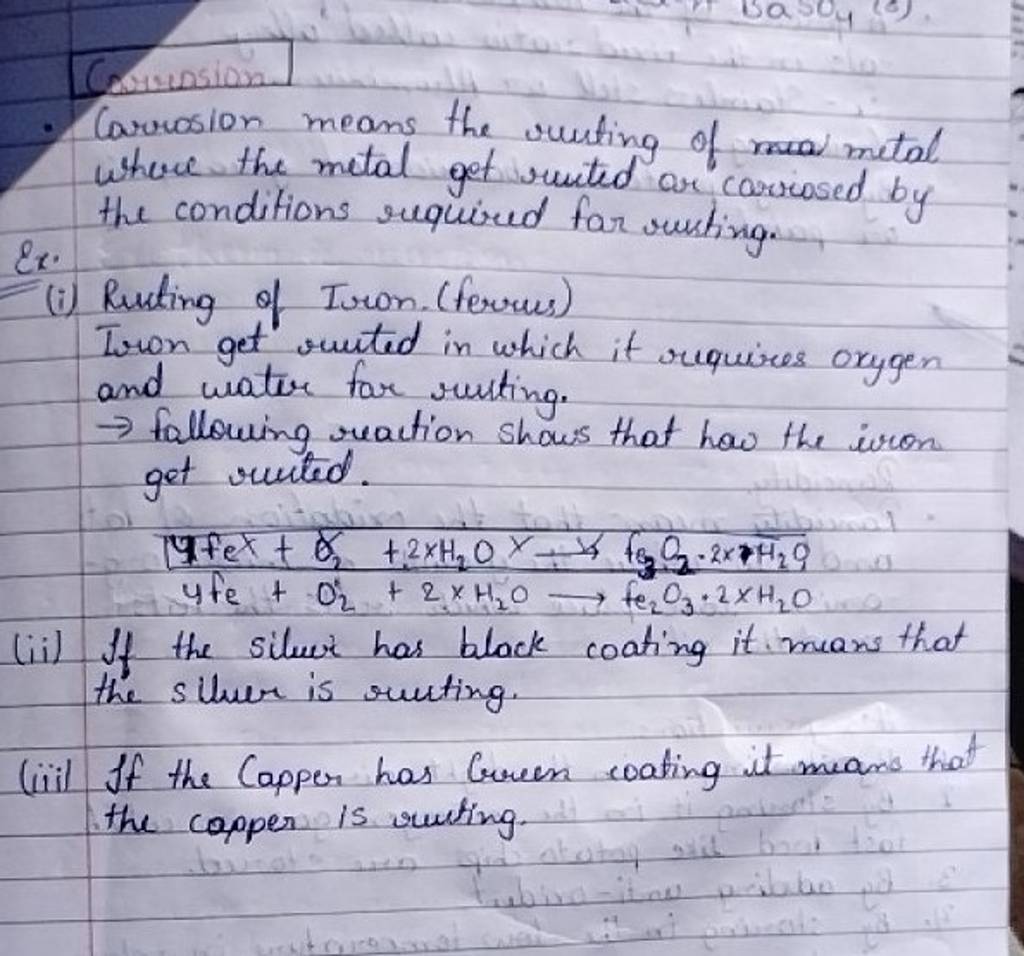 BaSO4 (s).
Corrosion
• Corrosion means the rusting of metal
where the metal get rusted or corrosed by
the conditions required for rusting.
Ex.
(i) Rusting of Iron. (ferrus)
Iron get rusted in which it requires oxygen
and water for rusting.
→ following reaction shows that how the iron
get rusted.
4fe + O2 + 2xH2O → fe2O3·2xH2O
4fe + O2 + 2xH2O → fe2O3·2xH2O
(ii) If the silver has black coating it means that
the silver is rusting.
(iii) If the Copper has Green coating it means that
the copper is rusting.